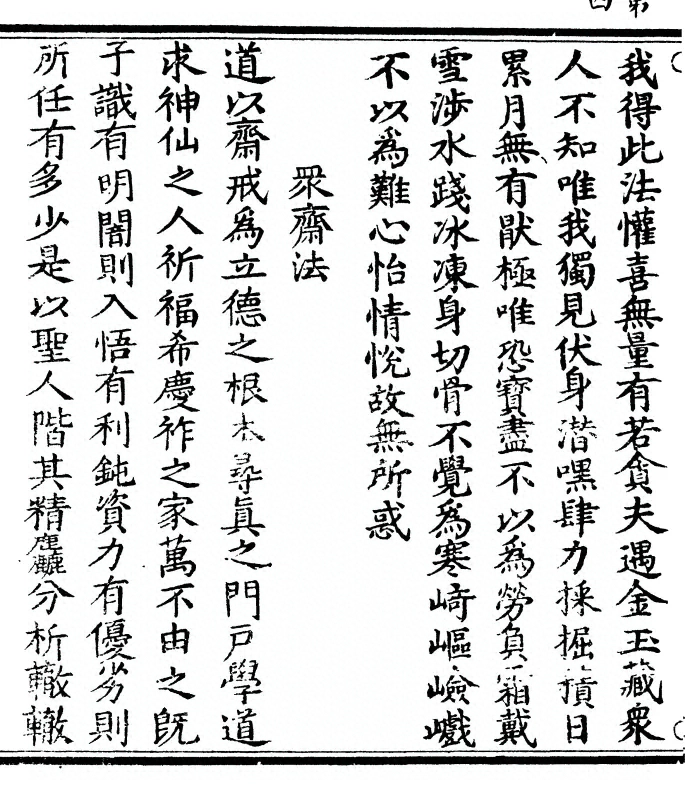 第四
我得此法懽喜無量有若貪夫遇金玉藏衆
人不知唯我獨見伏身潜嘿肆力採掘積日
累月無有猒極唯恐寶盡不以爲勞負霜戴
雪渉水踐冰凍身切骨不覺爲寒崎嶇嶮巇
不以爲難心怡情悅故無所惑
衆齋法
道以齋戒爲立德之根本尋眞之門户學道
求神仙之人祈福希慶祚之家萬不由之旣
子識有明闇則入悟有利鈍資力有優劣則
所任有多少是以聖人階其精麤分析轍轍